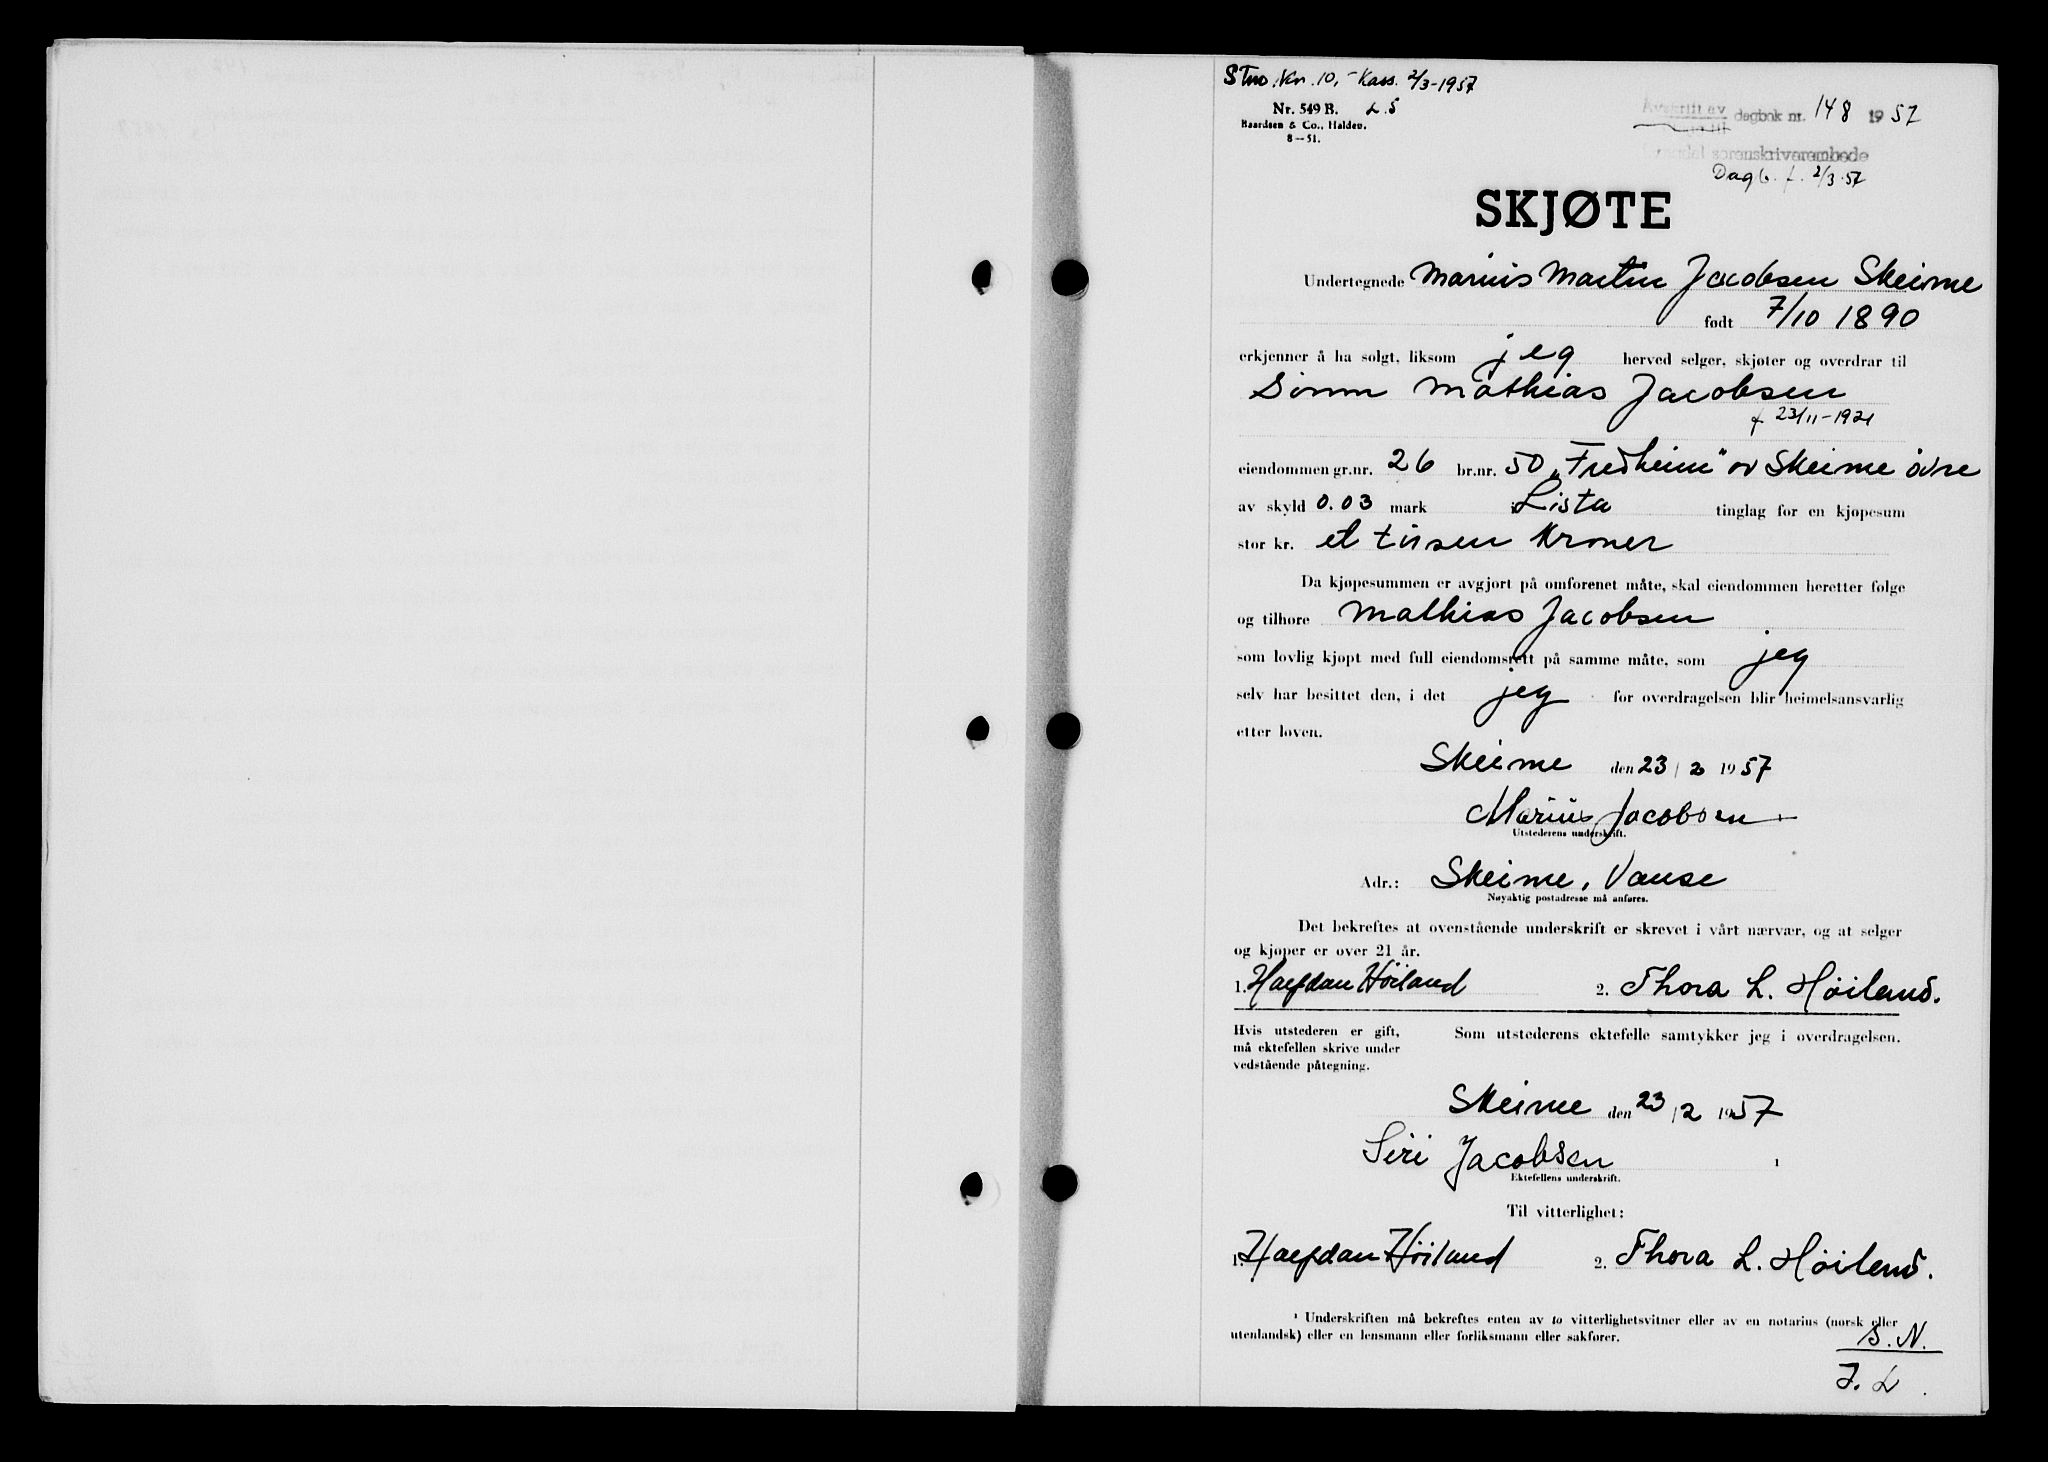 STm. Kr. 10,- Kass. 2/3-1957
Nr. 549 B. L.S
Baardsen & Co., Halden.
8—51.
Avskrift av dagbok nr. 148 1957
sorenskriverembede
Dagb. f. 2/3.57
SKJØTE
Undertegnede Marius Martin Jacobsen Skeime
født 7/10 1890
erkjenner å ha solgt, liksom jeg herved selger, skjøter og overdrar til
Sønn Mathias Jacobsen
f 23/11-1921
eiendommen gr.nr. 26 br.nr. 50 „Fredheim" av Skeime øvre
av skyld 0.03 mark i Lista tinglag for en kjøpesum
stor kr. et tusen kroner
Da kjøpesummen er avgjort på omforenet måte, skal eiendommen heretter følge
og tilhøre Mathias Jacobsen
som lovlig kjøpt med full eiendomsrett på samme måte, som jeg
selv har besittet den, i det jeg for overdragelsen blir heimelsansvarlig
etter loven.
Skeime den 23/2 1957
Marius Jacobsen
Utstederens underskrift.
Adr.: Skeime, Vanse
Nøyaktig postadresse må anføres.
Det bekreftes at ovenstående underskrift er skrevet i vårt nærvær, og at selger
og kjøper er over 21 år.
1. Halfdan Höiland 2. Thora L. Höiland.
Hvis utstederen er gift, Som utstederens ektefelle samtykker jeg i overdragelsen.
må ektefellen skrive under
vedstående påtegning.
Skeime den 23/2 1957
Siri Jacobsen 1
Ektefellens underskrift.
Til vitterlighet:
1. Halfdan Höiland 2. Thora L. Höiland.
¹ Underskriften må bekreftes enten av to vitterlighetsvitner eller av en notarius (norsk eller
utenlandsk) eller en lensmann eller forliksmann eller sakfører.
S. N.
J. L.